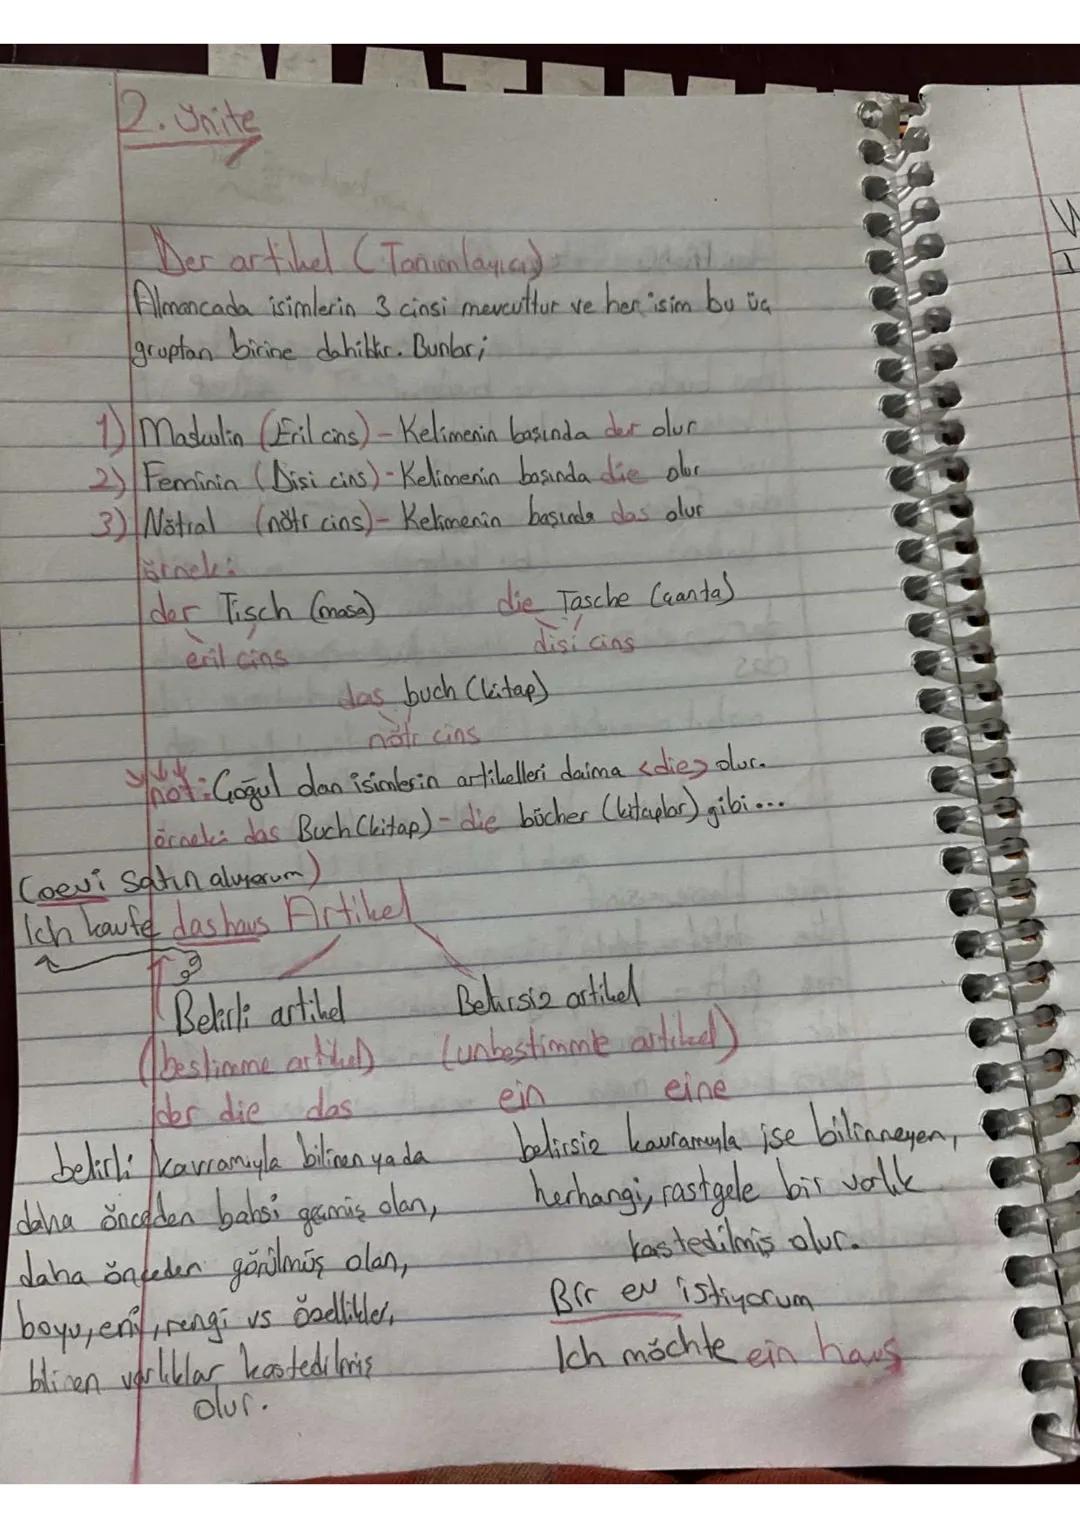 2. Ünite
Der artikel (Tanımlayıcı)
Almancada isimlerin 3 cinsi mevcuttur ve her isim bu üç
gruptan birine dahildir. Bunlar;
1) Maskulin (Eril cins) - Kelimenin başında der olur
2) Feminin (Dişi cins) - Kelimenin başında die olur
3) Nötral (nötr cins) - Kelimenin başında das olur
örnek:
der Tisch (masa) die Tasche (çanta)
eril cins dişi cins
das buch (kitap)
nötr cins
not: Çoğul olan isimlerin artikelleri daima <die> olur.
örnek: das Buch (kitap) - die bücher (kitaplar) gibi...
(o evi satın alıyorum)
Ich kaufe das haus Artikel
Belirli artikel Belirsiz artikel
(bestimme artikel) (unbestimmte artikel)
der die das ein eine
belirli kavramıyla bilinen ya da belirsiz kavramıyla ise bilinmeyen,
daha önceden bahsi geçmiş olan, herhangi, rastgele bir varlık
daha önceden görülmüş olan, kastedilmiş olur.
boyu, eni, rengi vs özellikler, Bir ev istiyorum
blinen varlıklar kastedilmiş Ich möchte ein haus
olur.